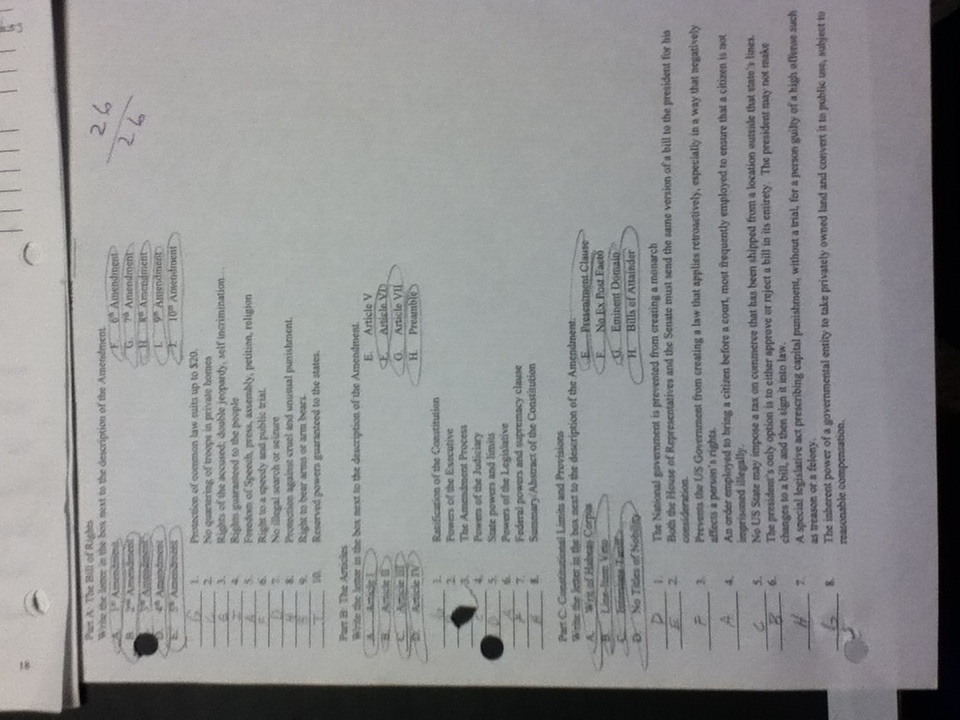 26
26
Part A: The Bill of Rights
Write the letter in the box next to the description of the Amendment.
A. 1st Amendment
B. 2nd Amendment
3rd Amendment
D. 4th Amendment
E. 5th Amendment
F. 6th Amendment
G. 7th Amendment
H. 8th Amendment
I. 9th Amendment
J. 10th Amendment
G 1. Protection of common law suits up to $20.
2. No quartering of troops in private homes
3. Rights of the accused: double jeopardy, self incrimination…
I 4. Rights guaranteed to the people
A 5. Freedom of Speech, press, assembly, petition, religion
F 6. Right to a speedy and public trial.
D 7. No illegal search or seizure
H 8. Protection against cruel and unusual punishment.
B 9. Right to bear arms or arm bears.
10. Reserved powers guaranteed to the states.
Part B: The Articles
Write the letter in the box next to the description of the Amendment.
A. Article I
B. Article II
C. Article III
D. Article IV
E. Article V
F. Article VI
G. Article VII
H. Preamble
G 1. Ratification of the Constitution
2. Powers of the Executive
3. The Amendment Process
C 4. Powers of the Judiciary
D 5. State powers and limits
A 6. Powers of the Legislative
F 7. Federal powers and supremacy clause
H 8. Summary/Abstract of the Constitution
Part C: Constitutional Limits and Provisions
Write the letter in the box next to the description of the Amendment.
A. Writ of Habeas Corpus
B. Line-Item Veto
C. Interstate Tariff
D. No Titles of Nobility
E. Presentment Clause
F. No Ex Post Facto
G. Eminent Domain
H. Bills of Attainder
D 1. The National government is prevented from creating a monarch
E 2. Both the House of Representatives and the Senate must send the same version of a bill to the president for his
consideration.
F 3. Prevents the US Government from creating a law that applies retroactively, especially in a way that negatively
affects a person's rights.
A 4. An order employed to bring a citizen before a court, most frequently employed to ensure that a citizen is not
imprisoned illegally.
C 5. No US State may impose a tax on commerce that has been shipped from a location outside that state's lines.
B 6. The president's only option is to either approve or reject a bill in its entirety. The president may not make
changes to a bill, and then sign it into law.
H 7. A special legislative act prescribing capital punishment, without a trial, for a person guilty of a high offense such
as treason or a felony.
G 8. The inherent power of a governmental entity to take privately owned land and convert it to public use, subject to
reasonable compensation.